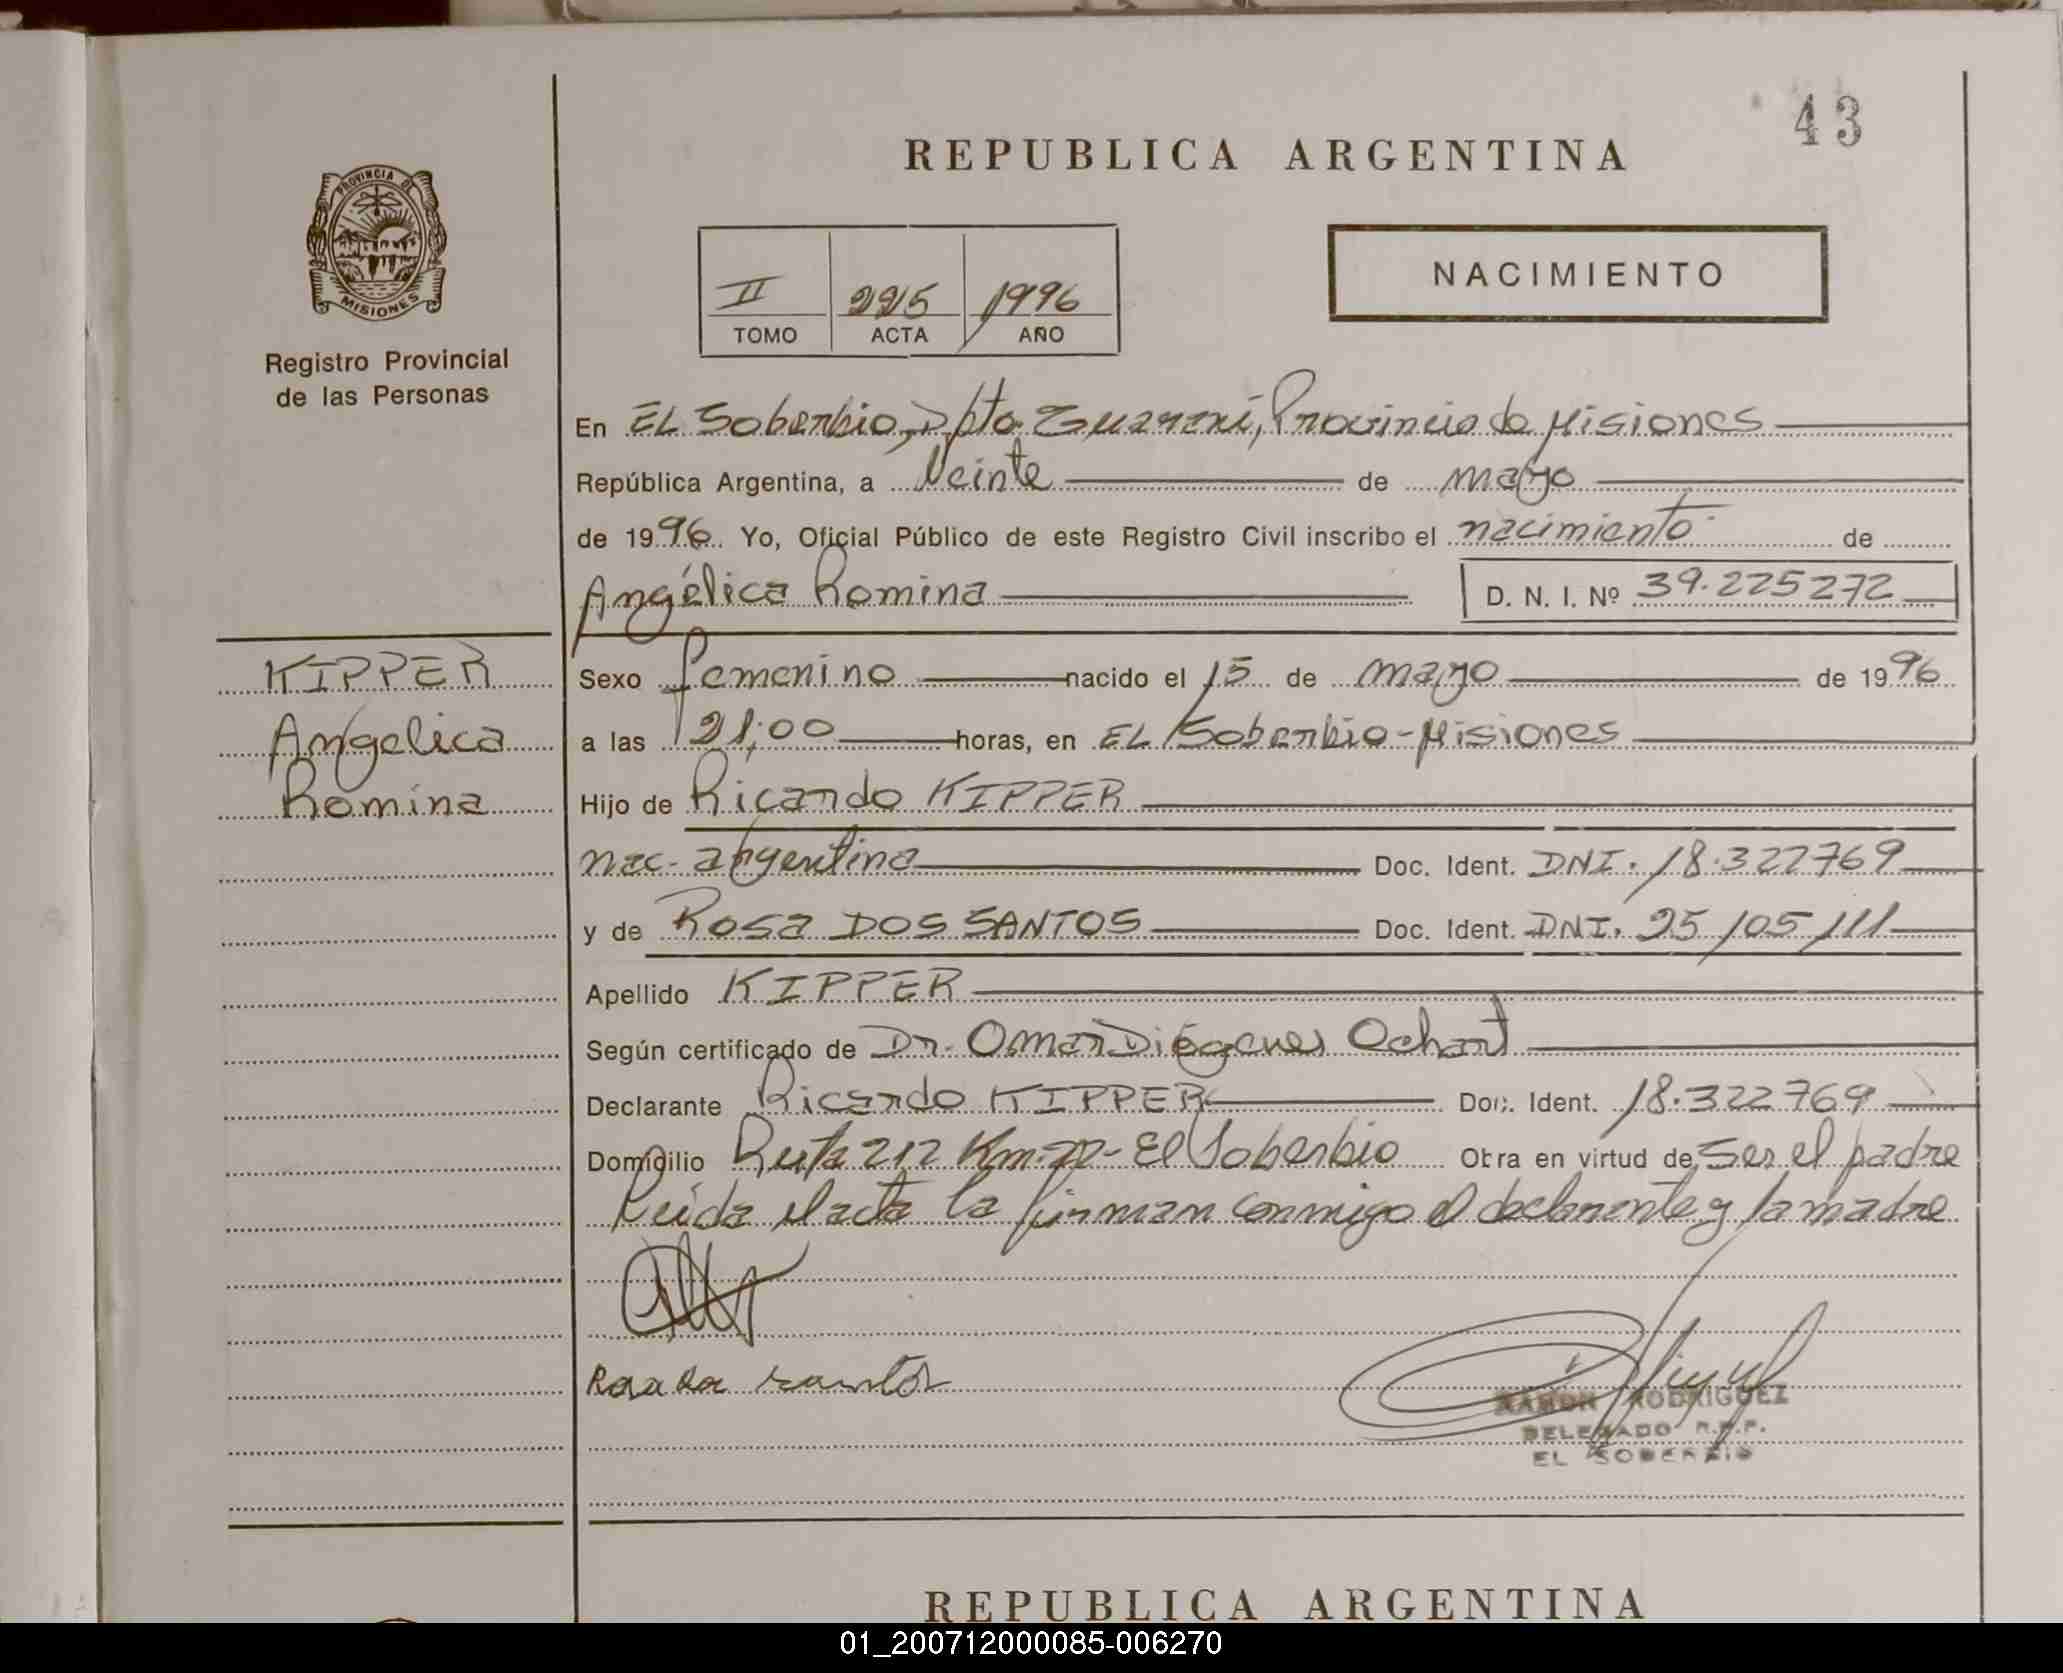 43
REPUBLICA ARGENTINA
PROVINCIA DE
MISIONES
Registro Provincial
de las Personas
II 225 1996
TOMO ACTA AÑO
NACIMIENTO
En EL Soberbio, Dpto Guaraní, Provincia de Misiones
República Argentina, a Veinte de mayo
de 1996. Yo, Oficial Público de este Registro Civil inscribo el nacimiento de
Angélica Romina D. N. I. Nº 39.225272
KIPPER
Angelica
Romina
Sexo femenino nacido el 15 de mayo de 1996
a las 21;00 horas, en EL Soberbio-Misiones
Hijo de Ricardo KIPPER
nac. argentina Doc. Ident. DNI. 18.322769
y de Rosa DOS SANTOS Doc. Ident. DNI. 25/05/111
Apellido KIPPER
Según certificado de Dr. Omar Diógenes Ochart
Declarante Ricardo KIPPER Doc. Ident. 18.322769
Domicilio Ruta 212 Km - El Soberbio Obra en virtud de Ser el padre
Leída el acta la firman conmigo el declarante y la madre
RAMON RODRIGUEZ
DELEGADO R.P.P.
EL SOBERBIO
REPUBLICA ARGENTINA
01_200712000085-006270